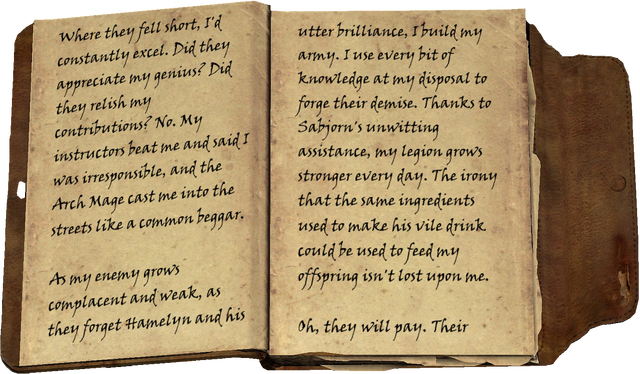 Where they fell short, I'd
constantly excel. Did they
appreciate my genius? Did
they relish my
contributions? No. My
instructors beat me and said I
was irresponsible, and the
Arch Mage cast me into the
streets like a common beggar.
As my enemy grows
complacent and weak, as
they forget Hamelyn and his
utter brilliance, I build my
army. I use every bit of
knowledge at my disposal to
forge their demise. Thanks to
Sabjorn's unwitting
assistance, my legion grows
stronger every day. The irony
that the same ingredients
used to make his vile drink
could be used to feed my
offspring isn't lost upon me.
Oh, they will pay. Their